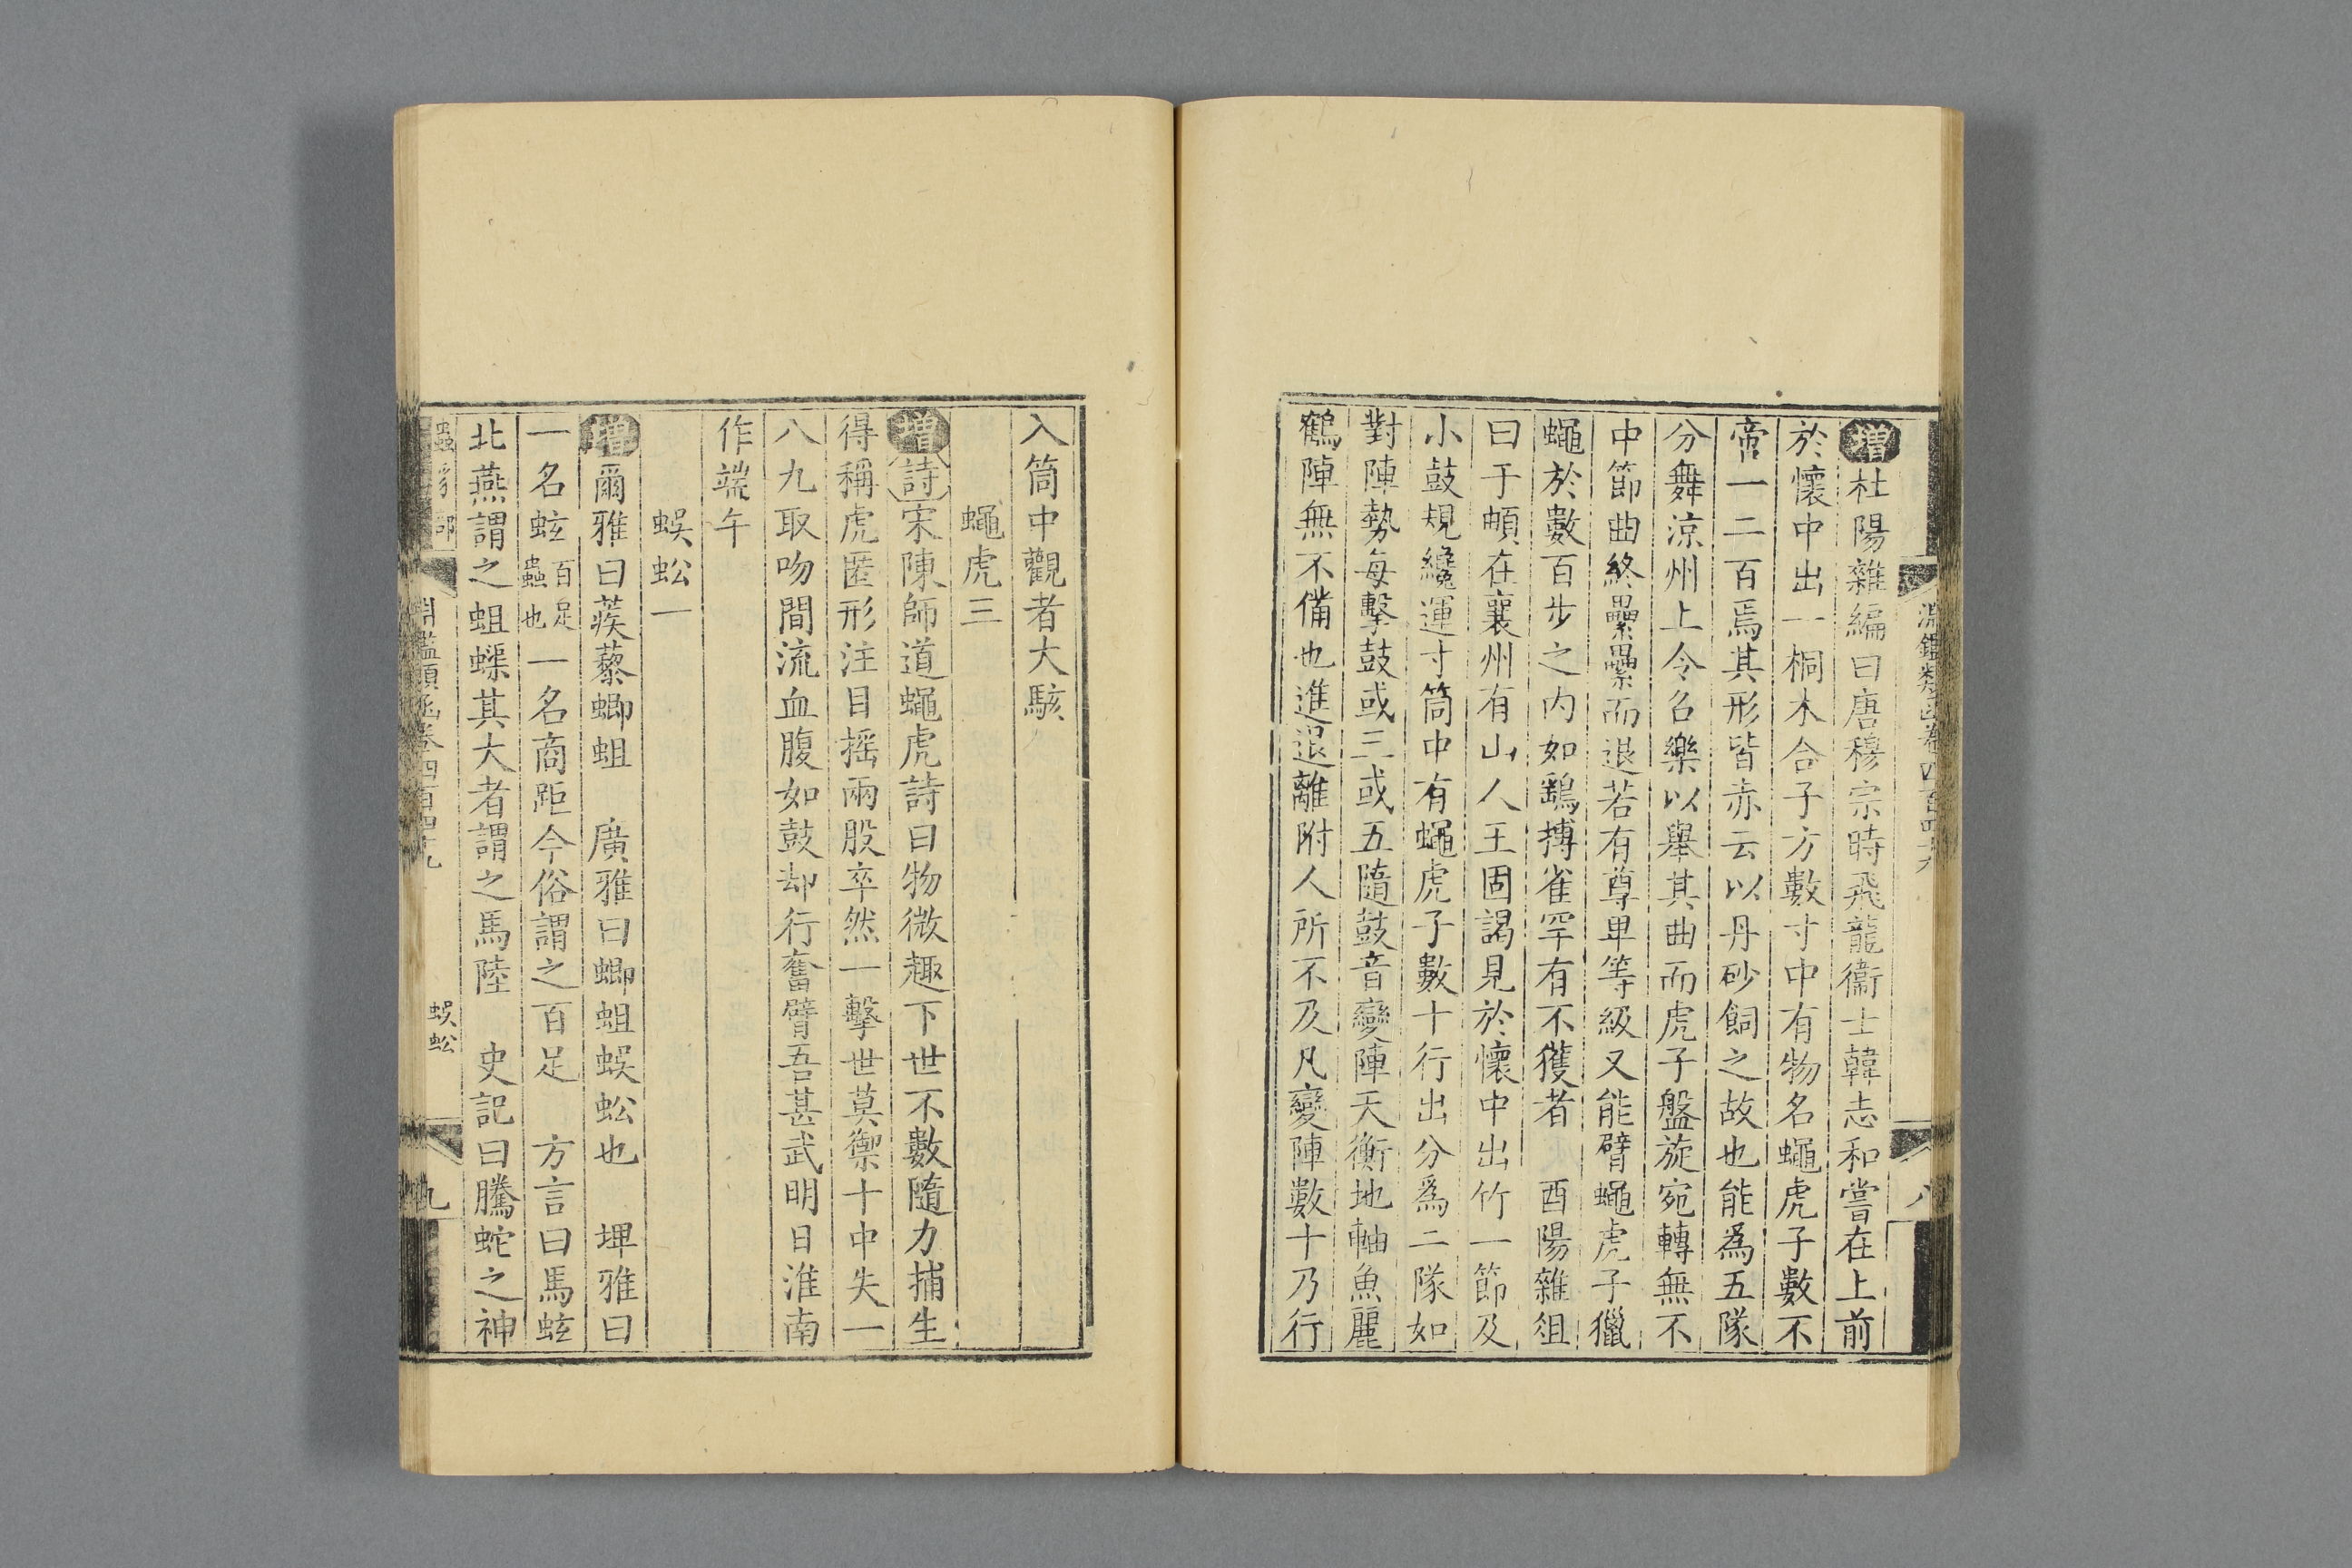 淵鑑類函卷四百四十九
八
增杜陽雜編曰唐穆宗時飛龍衞士韓志和嘗在上前
於懷中出一桐木合子方數寸中有物名蠅虎子數不
啻一二百焉其形皆赤云以丹砂飼之故也能爲五隊
分舞涼州上令召樂以舉其曲而虎子盤旋宛轉無不
中節曲終纍纍而退若有尊卑等級又能臂蠅虎子獵
蠅於數百步之内如鷂搏雀罕有不獲者 酉陽雜俎
曰于頔在襄州有山人王固謁見於懷中出竹一節及
小鼓規纔運寸筒中有蠅虎子數十行出分爲二隊如
對陣勢每擊鼓或三或五隨鼓音變陣天衡地軸魚麗
鶴陣無不備也進退離附人所不及凡變陣數十乃行
入筒中觀者大駭
蠅虎三
增詩宋陳師道蠅虎詩曰物微趣下世不數隨力捕生
得稱虎匿形注目摇兩股卒然一擊世莫禦十中失一
八九取吻間流血腹如鼓却行奮臂吾甚武明日淮南
作端午
蜈蚣一
增爾雅曰蒺藜蝍蛆 廣雅曰蝍蛆蜈蚣也 埤雅曰
一名蚿百足蟲也一名商距今俗謂之百足 方言曰馬蚿
北燕謂之蛆蟝其大者謂之馬陸 史記曰騰蛇之神
蟲豸部
淵鑑類函卷四百四十九
蜈蚣
九